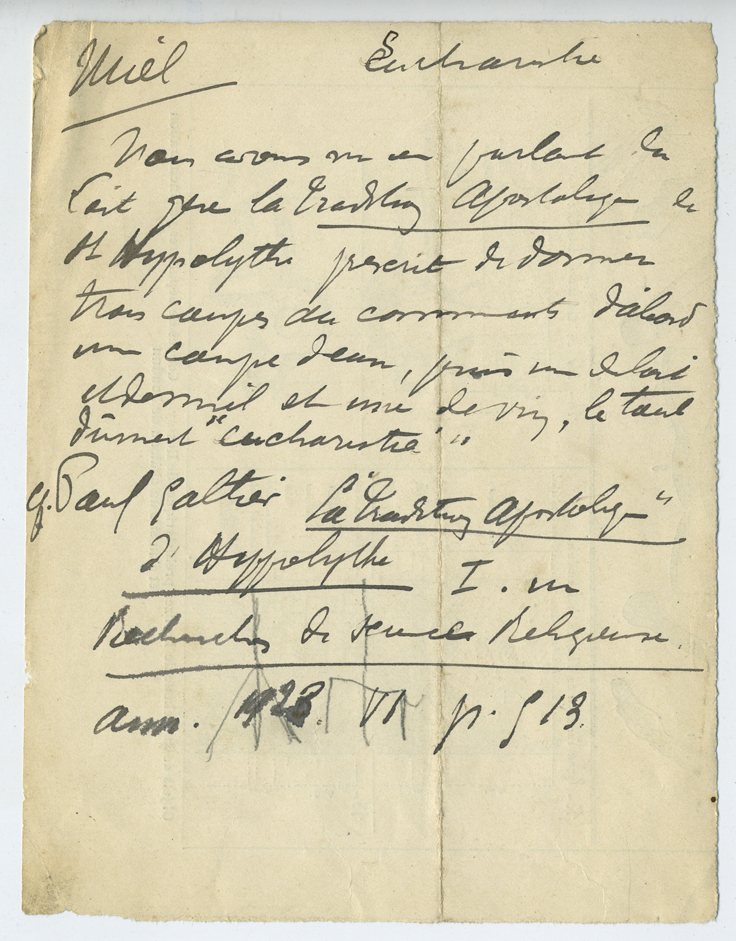 Miel Eucharistie
Nous avons vu en parlant du
Lait que la Tradition Apostolique de
St Hyppolythe prescrit de donner
trois coupes aux communiants d'abord
une coupe d'eau, puis une de lait
et de miel et une de vin, le tout
dûment "eucharistié"
cf. Paul Galtier "La Tradition Apostolique"
d'Hyppolythe I. in
Recherches de Science Religieuse.
ann. 1923. VI p. 513.